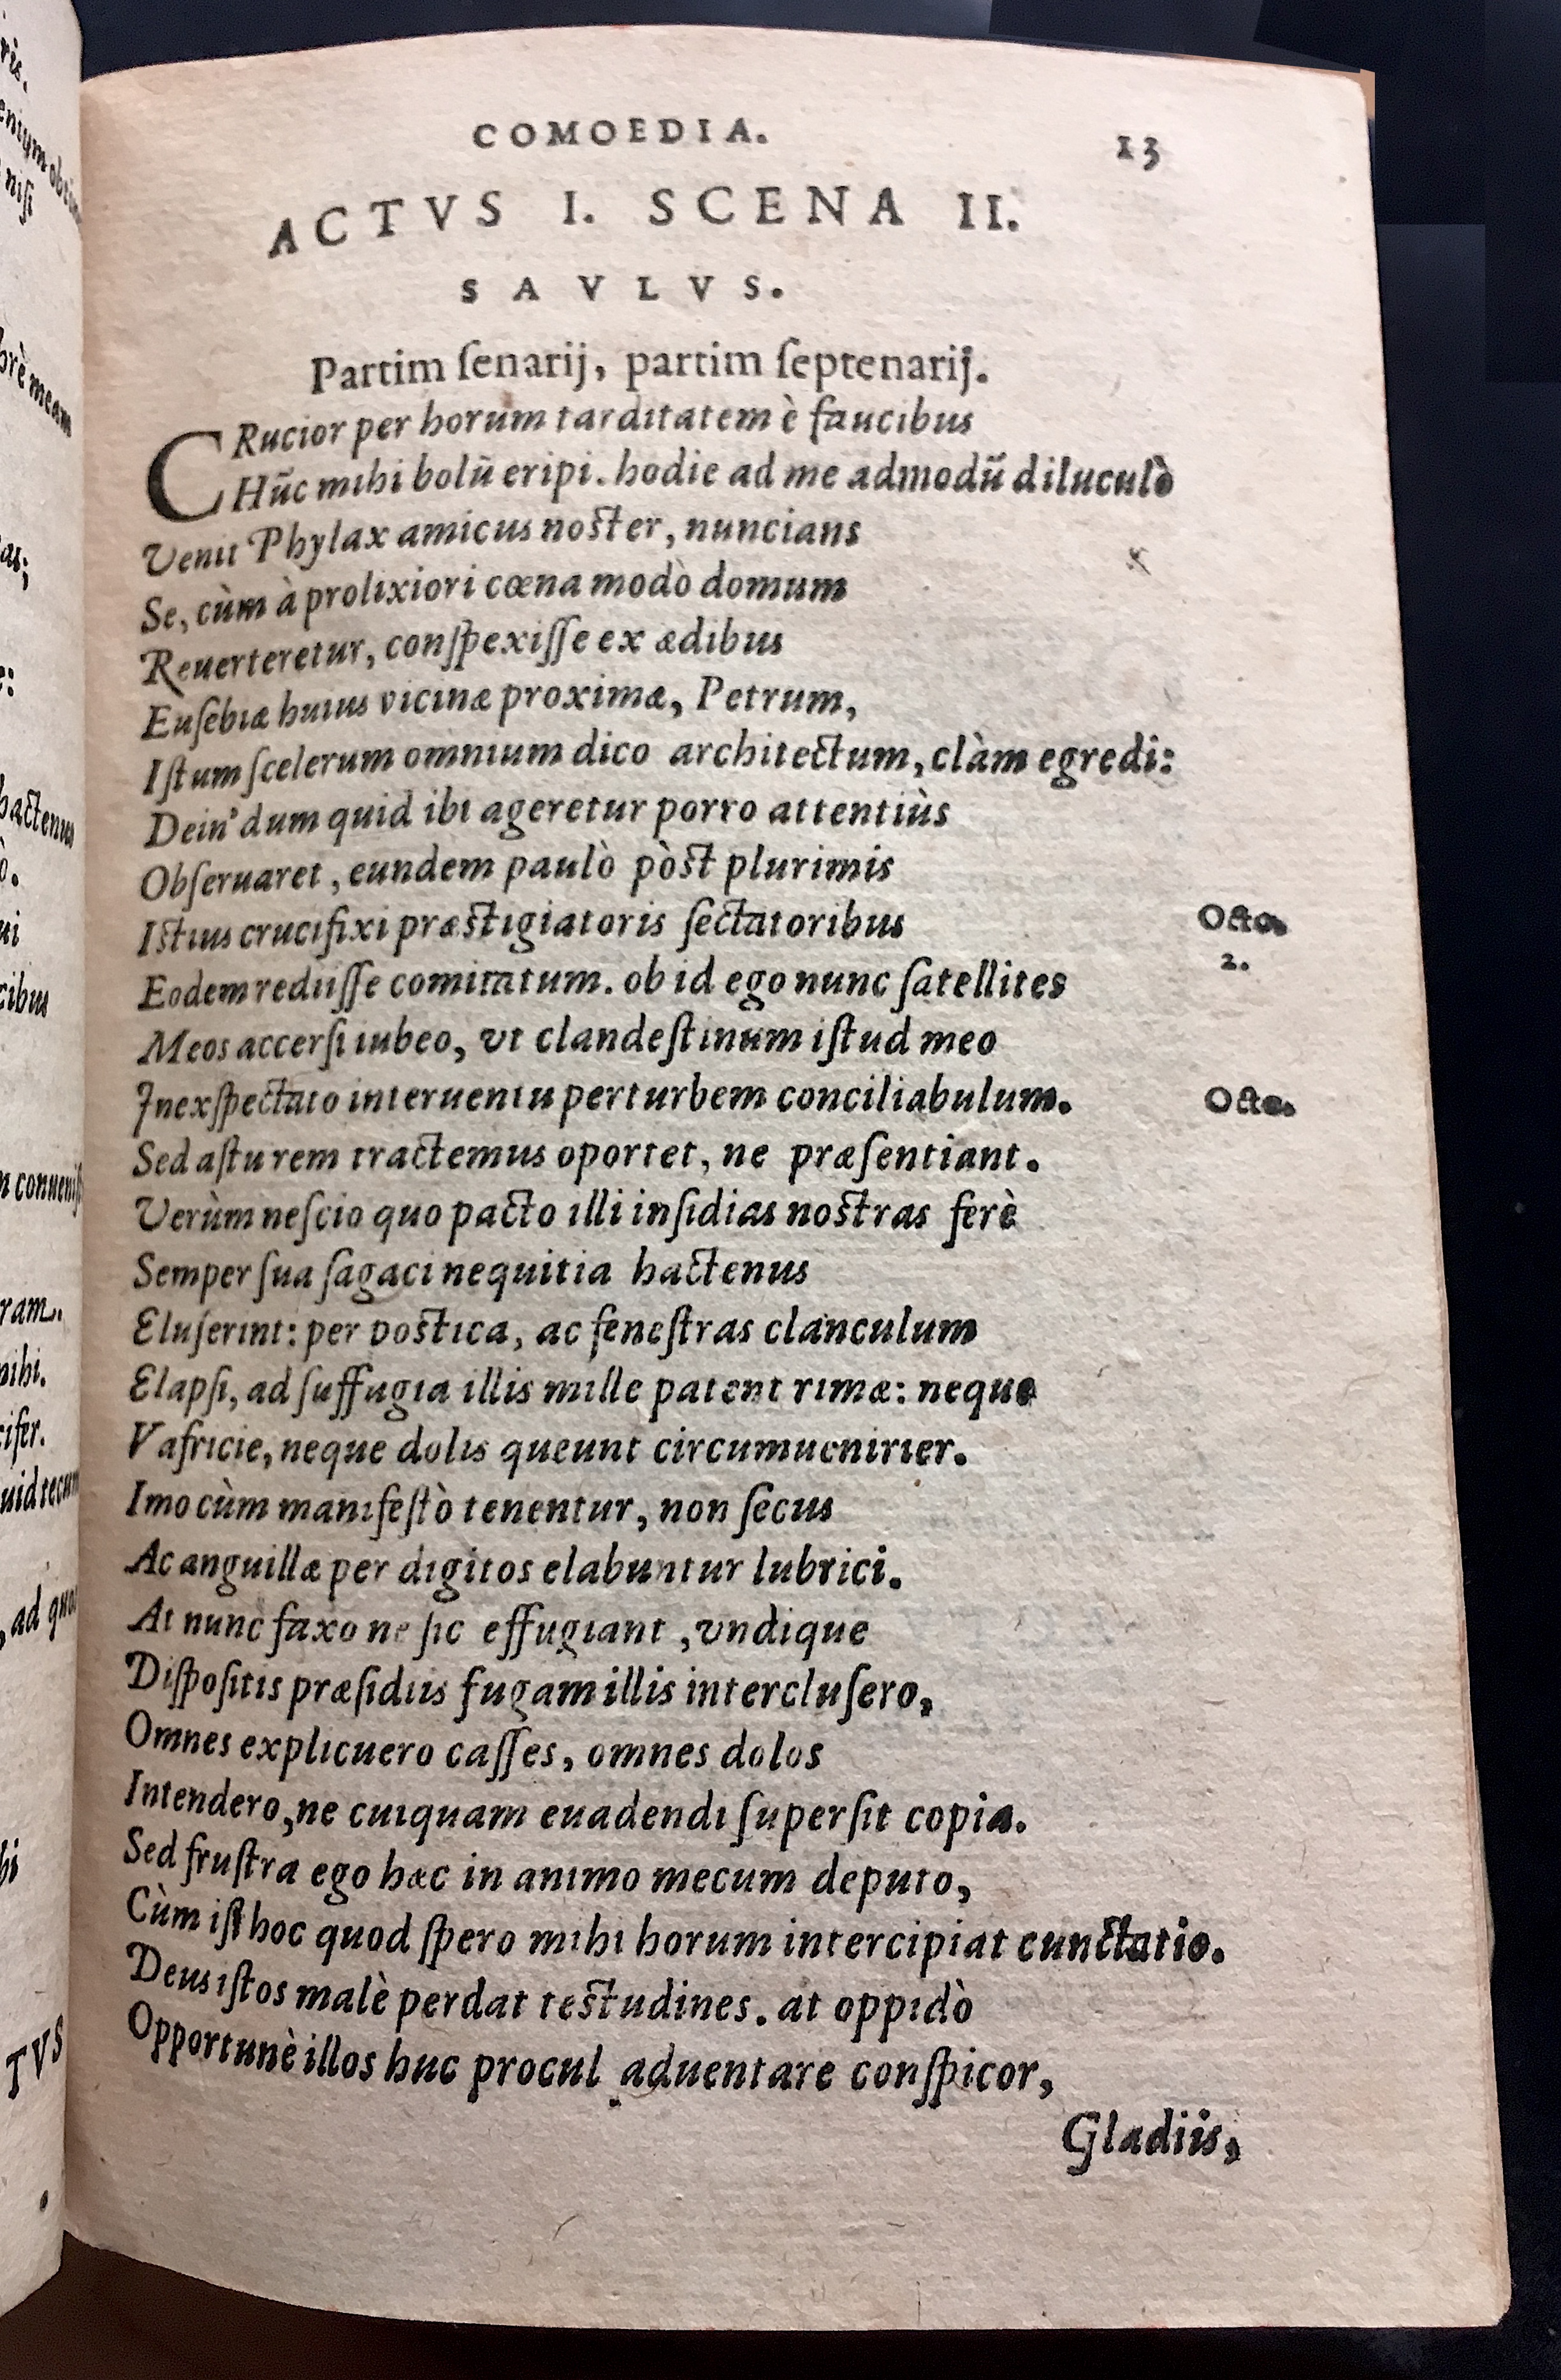 COMOEDIA. 13
ACTVS I. SCENA II.
SAVLVS.
Partim ſenarij, partim ſeptenarij.
CRucior per horum tarditatem è faucibus
Hūc mihi bolū eripi. hodie ad me admodū diluculò
Venit Phylax amicus noster, nuncians
Se, cùm à prolixiori cœna modò domum
Reuerteretur, conſpexiſſe ex ædibus
Euſebiæ huius vicinæ proximæ, Petrum,
Iſtum ſcelerum omnium dico architectum, clàm egredi:
Dein' dum quid ibi ageretur porro attentiùs
Obſeruaret, eundem paulò pòst plurimis
Istius crucifixi præstigiatoris ſectatoribus Octo.
2.
Eodem rediiſſe comitatum. ob id ego nunc ſatellites
Meos accerſi iubeo, vt clandeſtinum iſtud meo
Inexſpectato interuentu perturbem conciliabulum. Octo.
Sed aſtu rem tractemus oportet, ne præſentiant.
Verùm neſcio quo pacto illi inſidias nostras ferè
Semper ſua ſagaci nequitia hactenus
Eluſerint: per postica, ac feneſtras clanculum
Elapſi, ad ſuffugia illis mille patent rimæ: neque
Vafricie, neque dolis queunt circumuenirier.
Imo cùm manifeſtò tenentur, non ſecus
Ac anguillæ per digitos elabuntur lubrici.
At nunc faxo ne ſic effugiant, vndique
Diſpoſitis præſidiis fugam illis intercluſero,
Omnes explicuero caſſes, omnes dolos
Intendero, ne cuiquam euadendi ſuperſit copia.
Sed fruſtra ego hæc in animo mecum deputo,
Cùm iſthoc quod ſpero mihi horum intercipiat cunctatio.
Deus iſtos malè perdat testudines. at oppidò
Opportunè illos huc procul aduentare conſpicor,
Gladiis,